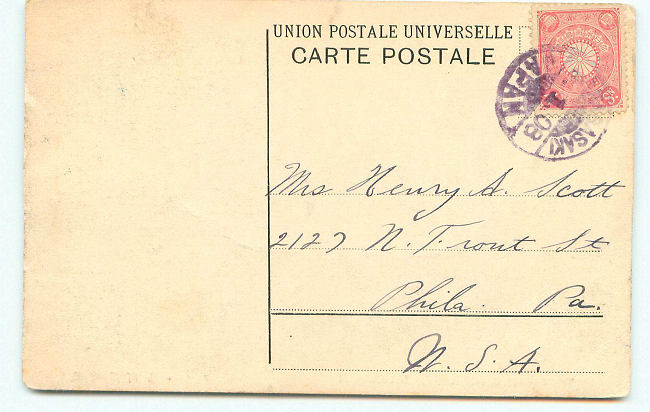 UNION POSTALE UNIVERSELLE
CARTE POSTALE
JAPAN
08
ASAKI
Mrs Henry A. Scott
2127 N. Front St
Phila. Pa.
U.S.A.